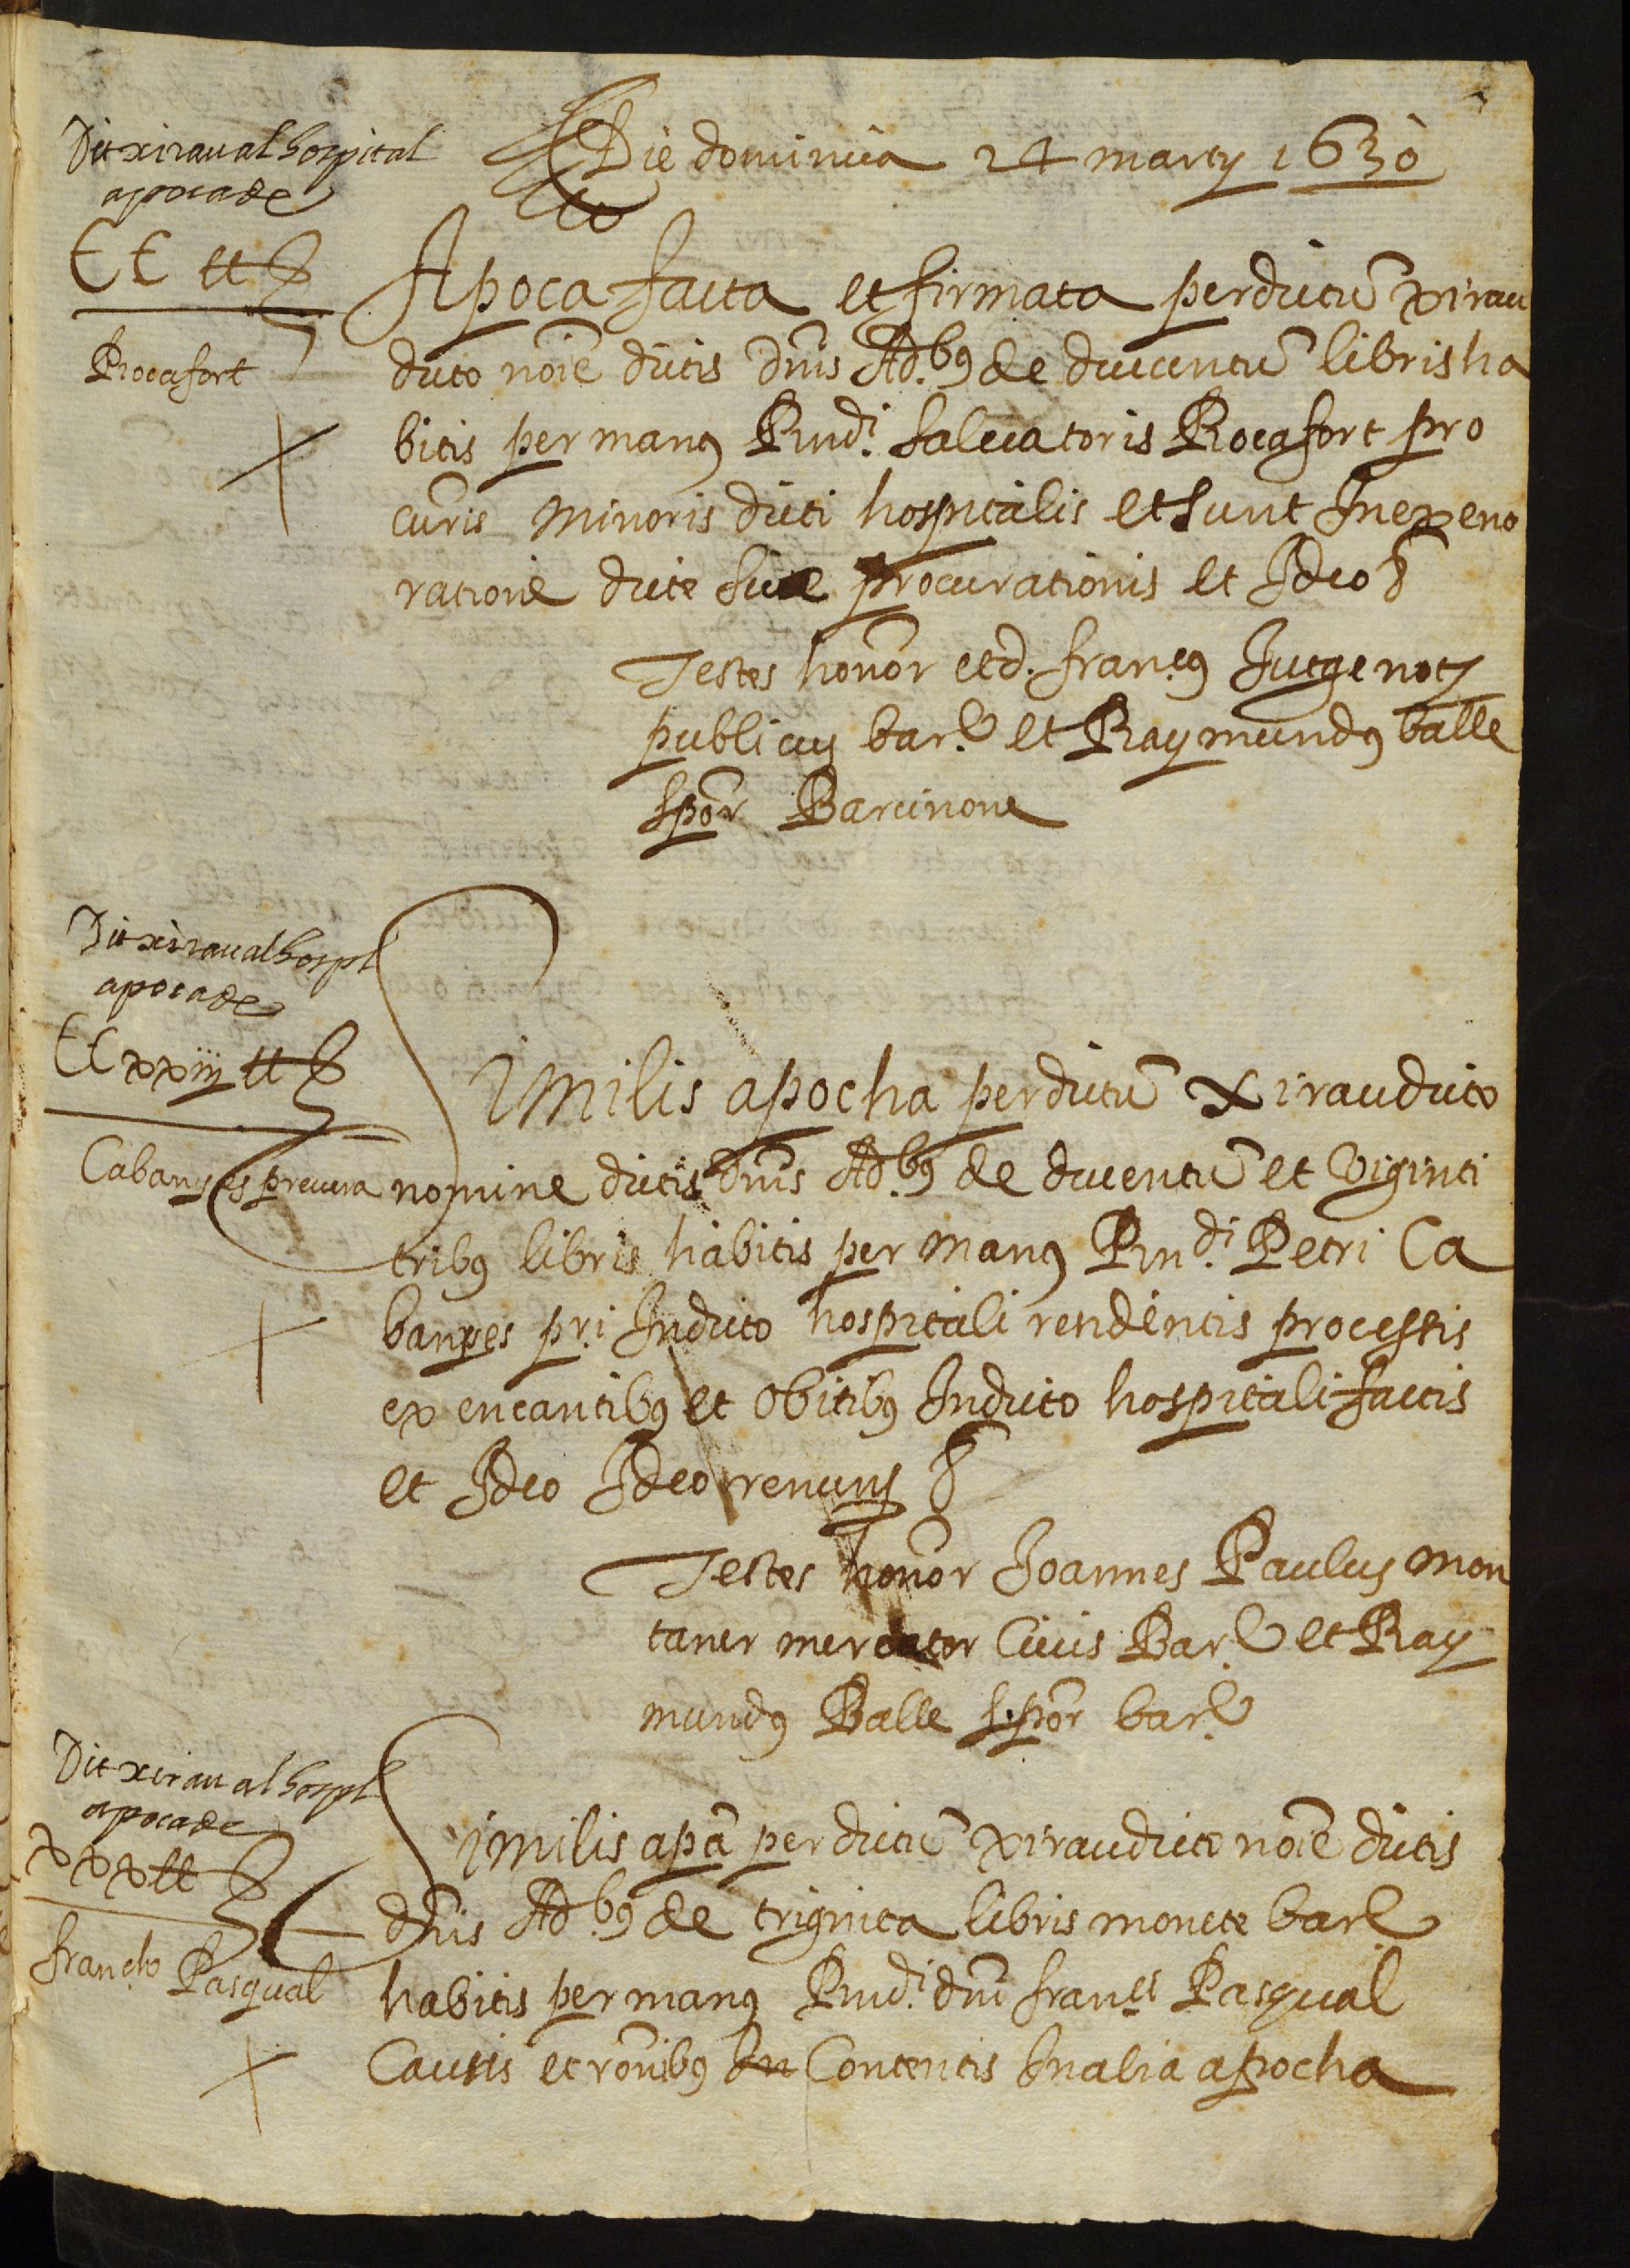 Die dominica 24 martij 1630
Dit xirau al hospital
apoca de
CC ll
Rocafort
Apoca facta et firmata per dictũ xirau
dicto noīe dictis dn̄is Ad.bꝰ de ducentũ libris ha
bitis per manꝰ Rndi. Saluatoris Rocafort pro
curis minoris dicti hospitalis et sunt In exeno
ratione dicte sue procurationis et Ideo &
Testes honor et d. francꝰ Jutge notꝰ
publicus bar. et Raymundꝰ balle
spōr Barcinone
Dit xirau al hospl
apoca de
CCxxiij ll
Cabanyes prevere
Similis apocha per dictũ xirau dicto
nomine dictis dn̄is Ad.bꝰ de ducentũ et viginti
tribꝰ libris habitis per manꝰ Rndi. Petri Ca
banyes pri. In dicto hospitali residentis processis
ex encantibꝰ et obitibꝰ In dicto hospitali factis
et Ideo Ideo renuns &
Testes honor Joannes Paulus mon
taner mercator Ciuis Bar. et Ray
mundꝰ Balle spōr bar.
Dit xirau al hospl
apoca de
xxx ll
franch Pasqual
Similis apā per dictũ xirau dicto noīe dictis
dn̄is Ad.bꝰ de triginta libris monete bar.
habitis per manꝰ Rndi. dn̄i franci Pasqual
Causis et rōnibꝰ In Contentis In alia apocha